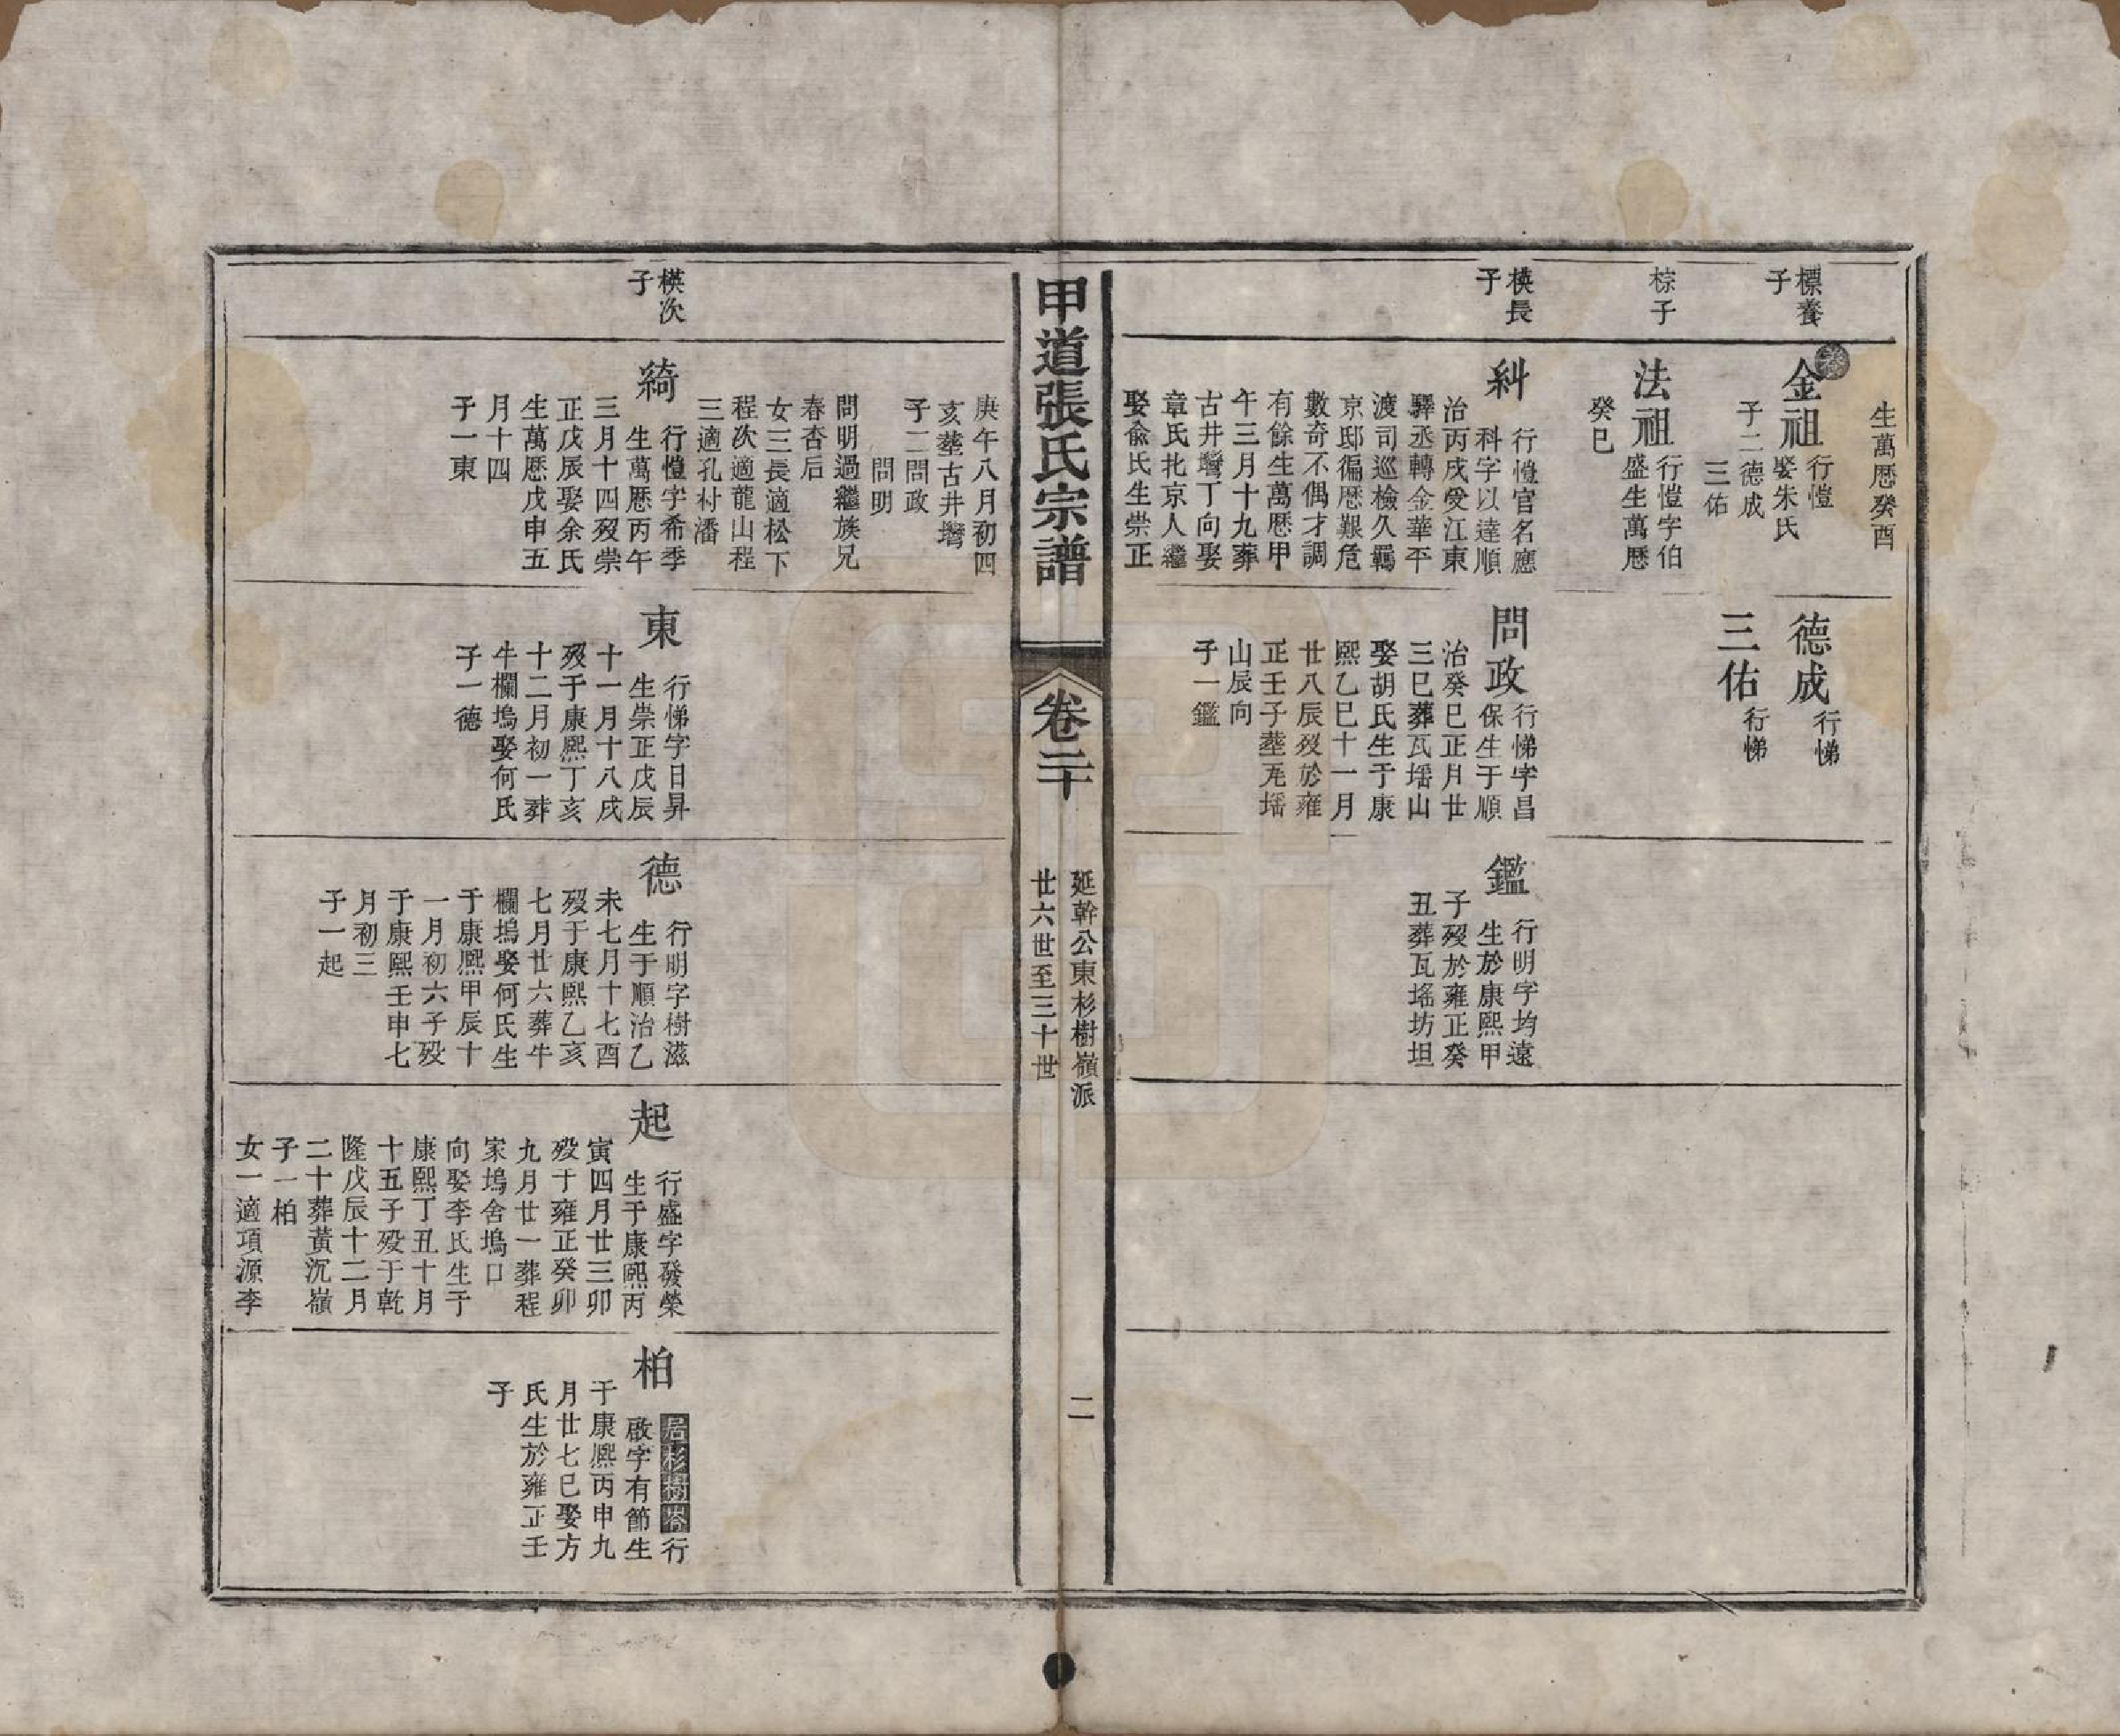 生萬厯癸酉
標養
子
金祖
行愷
娶朱氏
子二德成
三佑
德成
行悌
三佑
行悌
棕子
法祖
行愷字伯
盛生萬厯
癸巳
模長
子
糾
行愷官名應
科字以達順
治丙戌受江東
驛丞轉金華平
渡司巡檢久羈
京邸徧厯艱危
數奇不偶才調
有餘生萬厯甲
午三月十九葬
古井塝丁向娶
章氏北京人繼
娶兪氏生崇正
問政
行悌字昌
保生于順
治癸巳正月廿
三巳葬瓦塪山
娶胡氏生于康
熙乙巳十一月
廿八辰歿於雍
正壬子塟瓦塪
山辰向
子一鑑
鑑
行明字均遠
生於康熙甲
子歿於雍正癸
丑葬瓦塪坊坦
甲道張氏宗譜
卷二十
延幹公東杉樹嶺派
廿六世至三十世
二
庚午八月初四
亥塟古井塝
子二問政
問明
問明過繼族兄
春杏后
女三長適松下
程次適龍山程
三適孔村潘
模次
子
綺
行愷字希季
生萬厯丙午
三月十四歿崇
正戊辰娶余氏
生萬厯戊申五
月十四
子一東
東
行悌字日昇
生崇正戊辰
十一月十八戌
歿于康熙丁亥
十二月初一葬
牛欄塢娶何氏
子一德
德
行明字樹滋
生于順治乙
未七月十七酉
歿于康熙乙亥
七月廿六葬牛
欄塢娶何氏生
于康熙甲辰十
一月初六子歿
于康熙壬申七
月初三
子一起
起
行盛字發榮
生于康熙丙
寅四月廿三卯
歿于雍正癸卯
九月廿一葬程
家塢舍塢口
向娶李氏生于
康熙丁丑十月
十五子歿于乾
隆戊辰十二月
二十葬黃沉嶺
子一柏
女一適項源李
柏
居杉樹嶺行
啟字有節生
于康熙丙申九
月廿七巳娶方
氏生於雍正壬
子